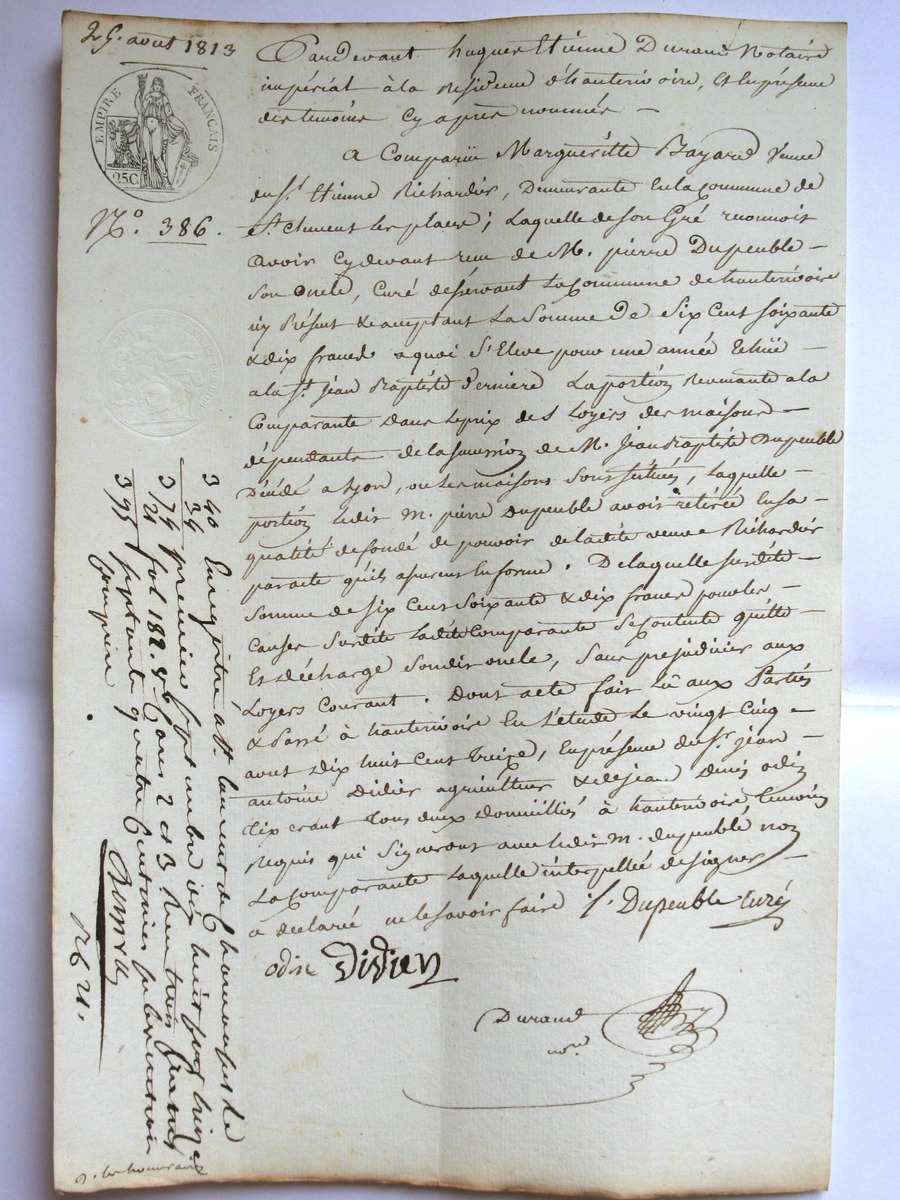 25. aout 1813
EMPIRE FRANÇAIS
25C
N.º 386.
Pardevant hugues Etienne Durand Notaire
impérial à la Residence d'hauterivoire, Et En présence
des temoins Cy après nommés —
A Comparüe Margueritte Bayard veuve
du S.r Etienne Richardier, Demeurante En la Commune de
S.t Clement les places; Laquelle de son Gré reconnoit
avoir Cy devant recu de M. pierre Dupeuble —
Son oncle, Curé desservant La Commune de hauterivoire
icy Présent & acceptant La Somme De Six Cent soixante
& dix francs a quoi S'Eleve pour une année Echüe —
a la S.t jean Baptiste Derniere La portion Revenante a la
Comparante Dans Le prix des Loyers des maisons —
dépendante de la succession de M. Jean Baptiste Dupeuble
Décédé a Lyon, ou Les maisons Sont sictuées, Laquelle —
portion Ledit M. pierre Dupeuble avoit retirée En sa
qualité de fondé de pouvoir de la dite veuve Richardier
par acte En forme. De laquelle susdite —
Somme de six Cent Soixante & dix francs pour les
Causes Susdite La dite Comparante Se Contente quitte
Et décharge Son dit oncle, Sans prejudicier aux
Loyers Courant. Dont acte fait Lû aux Partiés
& Passé à hauterivoire En L'étude Le vingt Cinq —
aout Dix huit Cent Treize, En présence du S.r jean —
antoine Didier agriculteur & de jean Denis odin
Tixerant Tous deux Domicilliés à hauterivoire Temoins
Requis qui Signeront avec Ledit M. dupeuble non
La Comparante Laquelle interpellée de signer —
a déclaré ne le savoir faire /. Dupeuble Curé
odin Didier
Durand
no.re
3 40 Enregistré à S.t Laurent de Chamousset Le
34 premier septembre dix huit cent treize
3 74 fol 182. Cases 2 et 3 Recu trois francs
21 soixante quatorze centimes subvention
3 95 Comprise